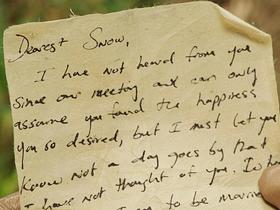 Dearest Snow,
I have not heard from you
since our meeting and can only
assume you found the happiness
you so desired, but I must let you
know not a day goes by that
I have not thought of you. I
to be